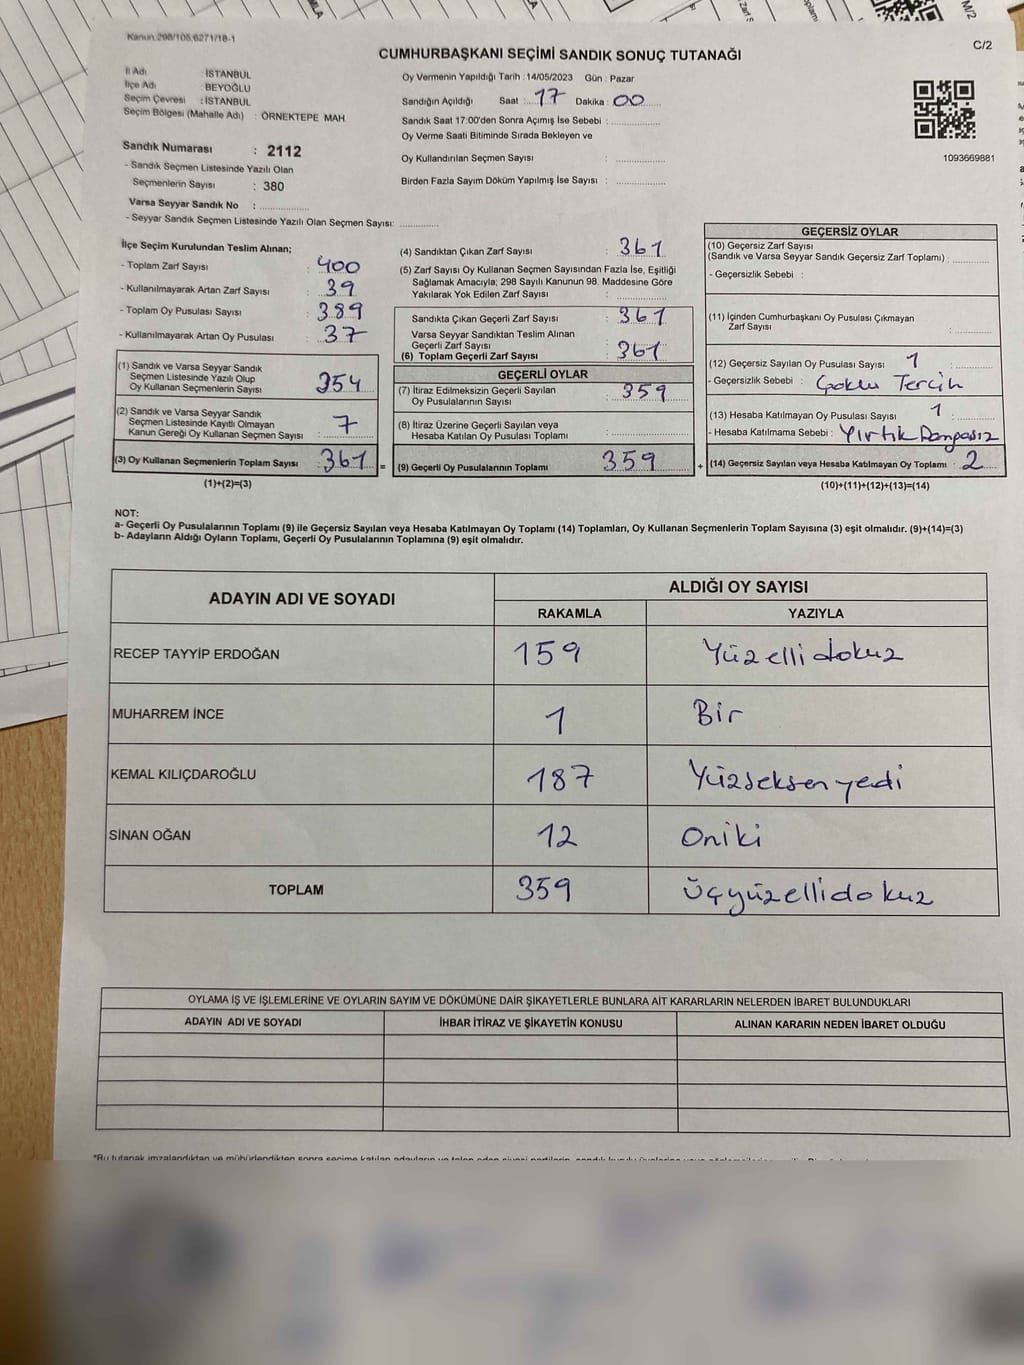 Kanun:298/105,6271/18-1
C/2
CUMHURBAŞKANI SEÇİMİ SANDIK SONUÇ TUTANAĞI
İl Adı : İSTANBUL
İlçe Adı : BEYOĞLU
Seçim Çevresi : İSTANBUL
Seçim Bölgesi (Mahalle Adı) : ÖRNEKTEPE MAH.
Sandık Numarası : 2112
- Sandık Seçmen Listesinde Yazılı Olan
Seçmenlerin Sayısı : 380
Varsa Seyyar Sandık No :
- Seyyar Sandık Seçmen Listesinde Yazılı Olan Seçmen Sayısı:
Oy Vermenin Yapıldığı Tarih : 14/05/2023 Gün : Pazar
Sandığın Açıldığı Saat : 17 Dakika : 00
Sandık Saat 17:00'den Sonra Açımış İse Sebebi :
Oy Verme Saati Bitiminde Sırada Bekleyen ve
Oy Kullandırılan Seçmen Sayısı :
Birden Fazla Sayım Döküm Yapılmış İse Sayısı :
1093669881
İlçe Seçim Kurulundan Teslim Alınan;
- Toplam Zarf Sayısı : 400
- Kullanılmayarak Artan Zarf Sayısı : 39
- Toplam Oy Pusulası Sayısı : 389
- Kullanılmayarak Artan Oy Pusulası : 37
(1) Sandık ve Varsa Seyyar Sandık
Seçmen Listesinde Yazılı Olup
Oy Kullanan Seçmenlerin Sayısı : 354
(2) Sandık ve Varsa Seyyar Sandık
Seçmen Listesinde Kayıtlı Olmayan
Kanun Gereği Oy Kullanan Seçmen Sayısı : 7
(3) Oy Kullanan Seçmenlerin Toplam Sayısı : 361 =
(1)+(2)=(3)
(4) Sandıktan Çıkan Zarf Sayısı : 361
(5) Zarf Sayısı Oy Kullanan Seçmen Sayısından Fazla İse, Eşitliği
Sağlamak Amacıyla; 298 Sayılı Kanunun 98. Maddesine Göre
Yakılarak Yok Edilen Zarf Sayısı :
Sandıkta Çıkan Geçerli Zarf Sayısı : 361
Varsa Seyyar Sandıktan Teslim Alınan
Geçerli Zarf Sayısı :
(6) Toplam Geçerli Zarf Sayısı : 361
GEÇERLİ OYLAR
(7) İtiraz Edilmeksizin Geçerli Sayılan
Oy Pusulalarının Sayısı : 359
(8) İtiraz Üzerine Geçerli Sayılan veya
Hesaba Katılan Oy Pusulası Toplamı :
(9) Geçerli Oy Pusulalarının Toplamı 359 +
GEÇERSİZ OYLAR
(10) Geçersiz Zarf Sayısı
(Sandık ve Varsa Seyyar Sandık Geçersiz Zarf Toplamı) :
- Geçersizlik Sebebi :
(11) İçinden Cumhurbaşkanı Oy Pusulası Çıkmayan
Zarf Sayısı :
(12) Geçersiz Sayılan Oy Pusulası Sayısı : 1
- Geçersizlik Sebebi : Çoklu Tercih
(13) Hesaba Katılmayan Oy Pusulası Sayısı : 1
- Hesaba Katılmama Sebebi : Yırtık Damgasız
(14) Geçersiz Sayılan veya Hesaba Katılmayan Oy Toplamı : 2
(10)+(11)+(12)+(13)=(14)
NOT:
a- Geçerli Oy Pusulalarının Toplamı (9) ile Geçersiz Sayılan veya Hesaba Katılmayan Oy Toplamı (14) Toplamları, Oy Kullanan Seçmenlerin Toplam Sayısına (3) eşit olmalıdır. (9)+(14)=(3)
b- Adayların Aldığı Oyların Toplamı, Geçerli Oy Pusulalarının Toplamına (9) eşit olmalıdır.
ADAYIN ADI VE SOYADI ALDIĞI OY SAYISI
RAKAMLA YAZIYLA
RECEP TAYYİP ERDOĞAN 159 Yüzelli dokuz
MUHARREM İNCE 1 Bir
KEMAL KILIÇDAROĞLU 187 Yüzseksen yedi
SİNAN OĞAN 12 Oniki
TOPLAM 359 Üçyüzellidokuz
OYLAMA İŞ VE İŞLEMLERİNE VE OYLARIN SAYIM VE DÖKÜMÜNE DAİR ŞİKAYETLERLE BUNLARA AİT KARARLARIN NELERDEN İBARET BULUNDUKLARI
ADAYIN ADI VE SOYADI İHBAR İTİRAZ VE ŞİKAYETİN KONUSU ALINAN KARARIN NEDEN İBARET OLDUĞU